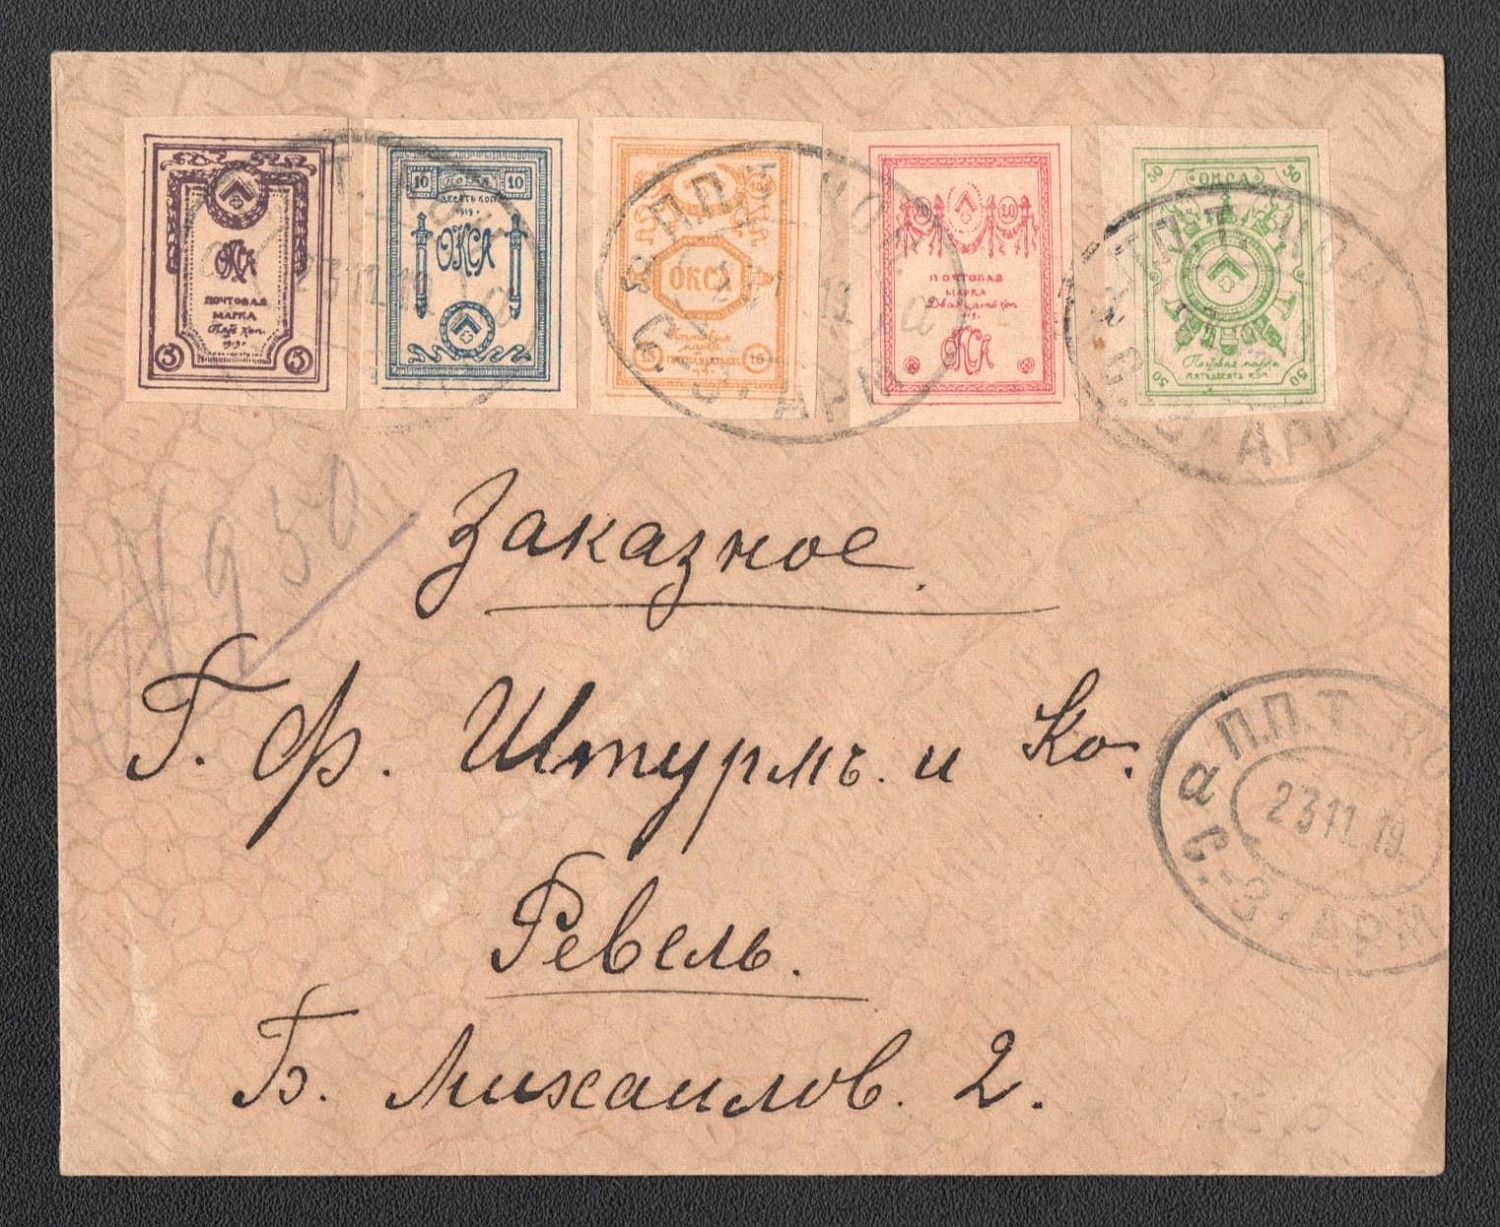 ОКСА
ПОЧТОВАЯ
МАРКА
Пять коп.
1919г
5 5
10 МАРКА 10
ДЕСЯТЬ КОП
1919 г
ОКСА
ОКСА
Почтовая
марка
15 15
20
ПОЧТОВАЯ
МАРКА
Двадцать коп
ОКСА
50 ОКСА 50
Почтовая марка
ПЯТЬДЕСЯТ КОП
50 50
П.П.Т. КО
С.-З. АРМ
а
№ 950
Заказное.
Г. Ф. Штурмъ. и Ко.
Ревель.
Б. Михаилов. 2.
П.П.Т. КО
а
23 11. 19.
С.-З. АРМ